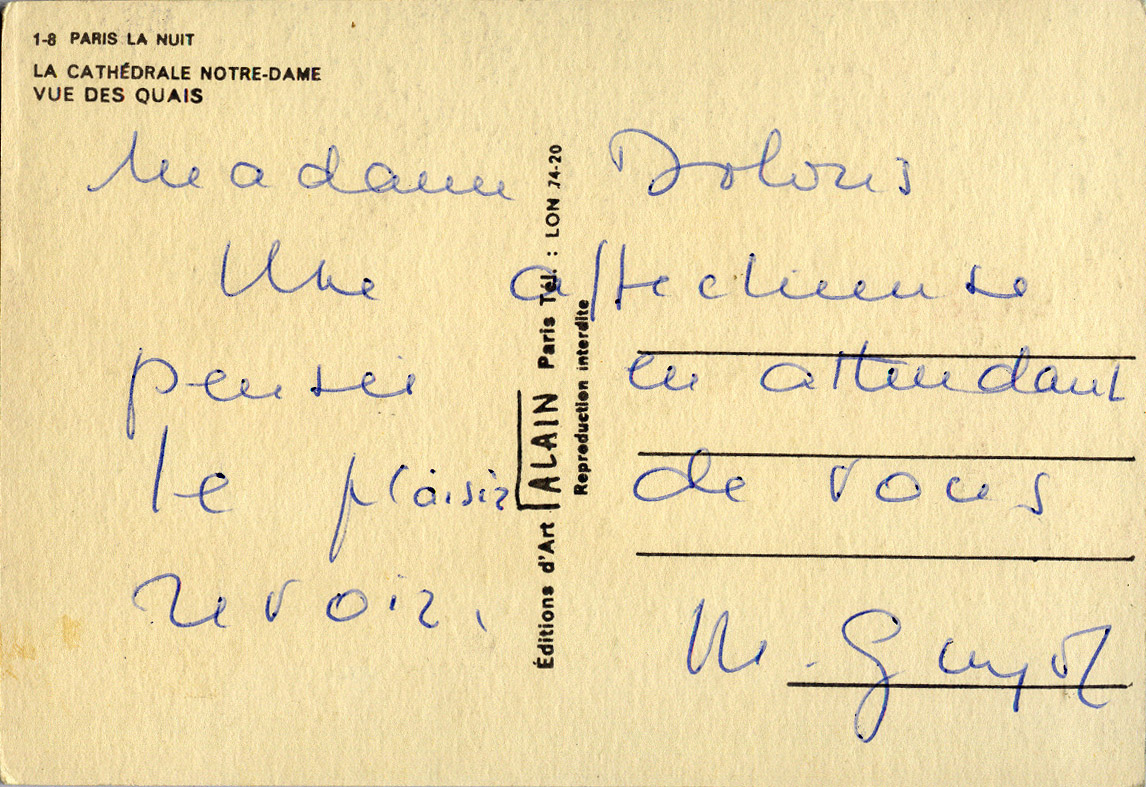 1-8 PARIS LA NUIT
LA CATHÉDRALE NOTRE-DAME
VUE DES QUAIS
Madame Dolorès
Une affectueuse
pensée en attendant
le plaisir de vous
revoir.
M. Guyot
Éditions d'Art ALAIN Paris Tél. : LON 74-20
Reproduction interdite